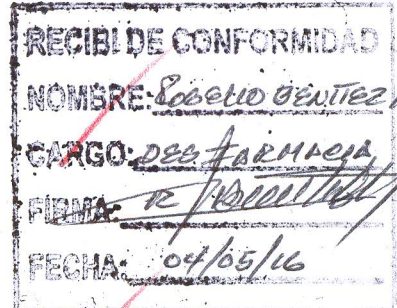 RECIBI DE CONFORMIDAD
NOMBRE: ROGELIO BENITEZ
CARGO: DES FARMACIA
FIRMA:
FECHA: 04/05/16